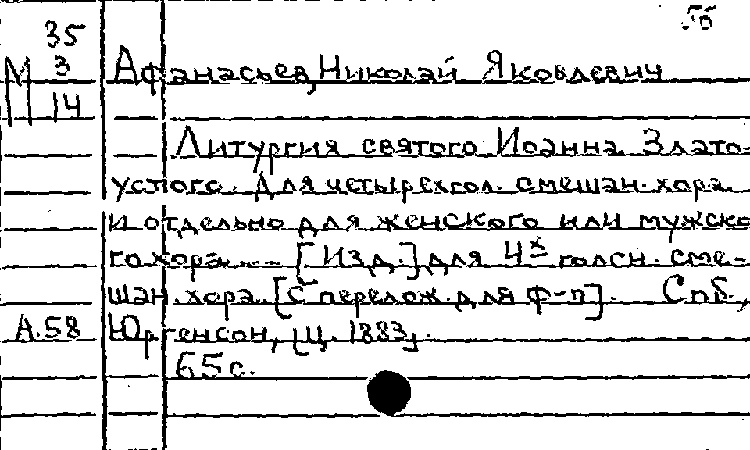 35
М 3
14
Афанасьев, Николай Яковлевич
Литургия святого Иоанна Злато-
устого. Для четырехгол. смешан. хора
и отдельно для женского или мужско
го хора... [Изд.] для 4х голсн. сме-
шан. хора. [С перелож. для ф-п]. Спб.,
А.58 Юргенсон, [ц. 1883].
65 с.